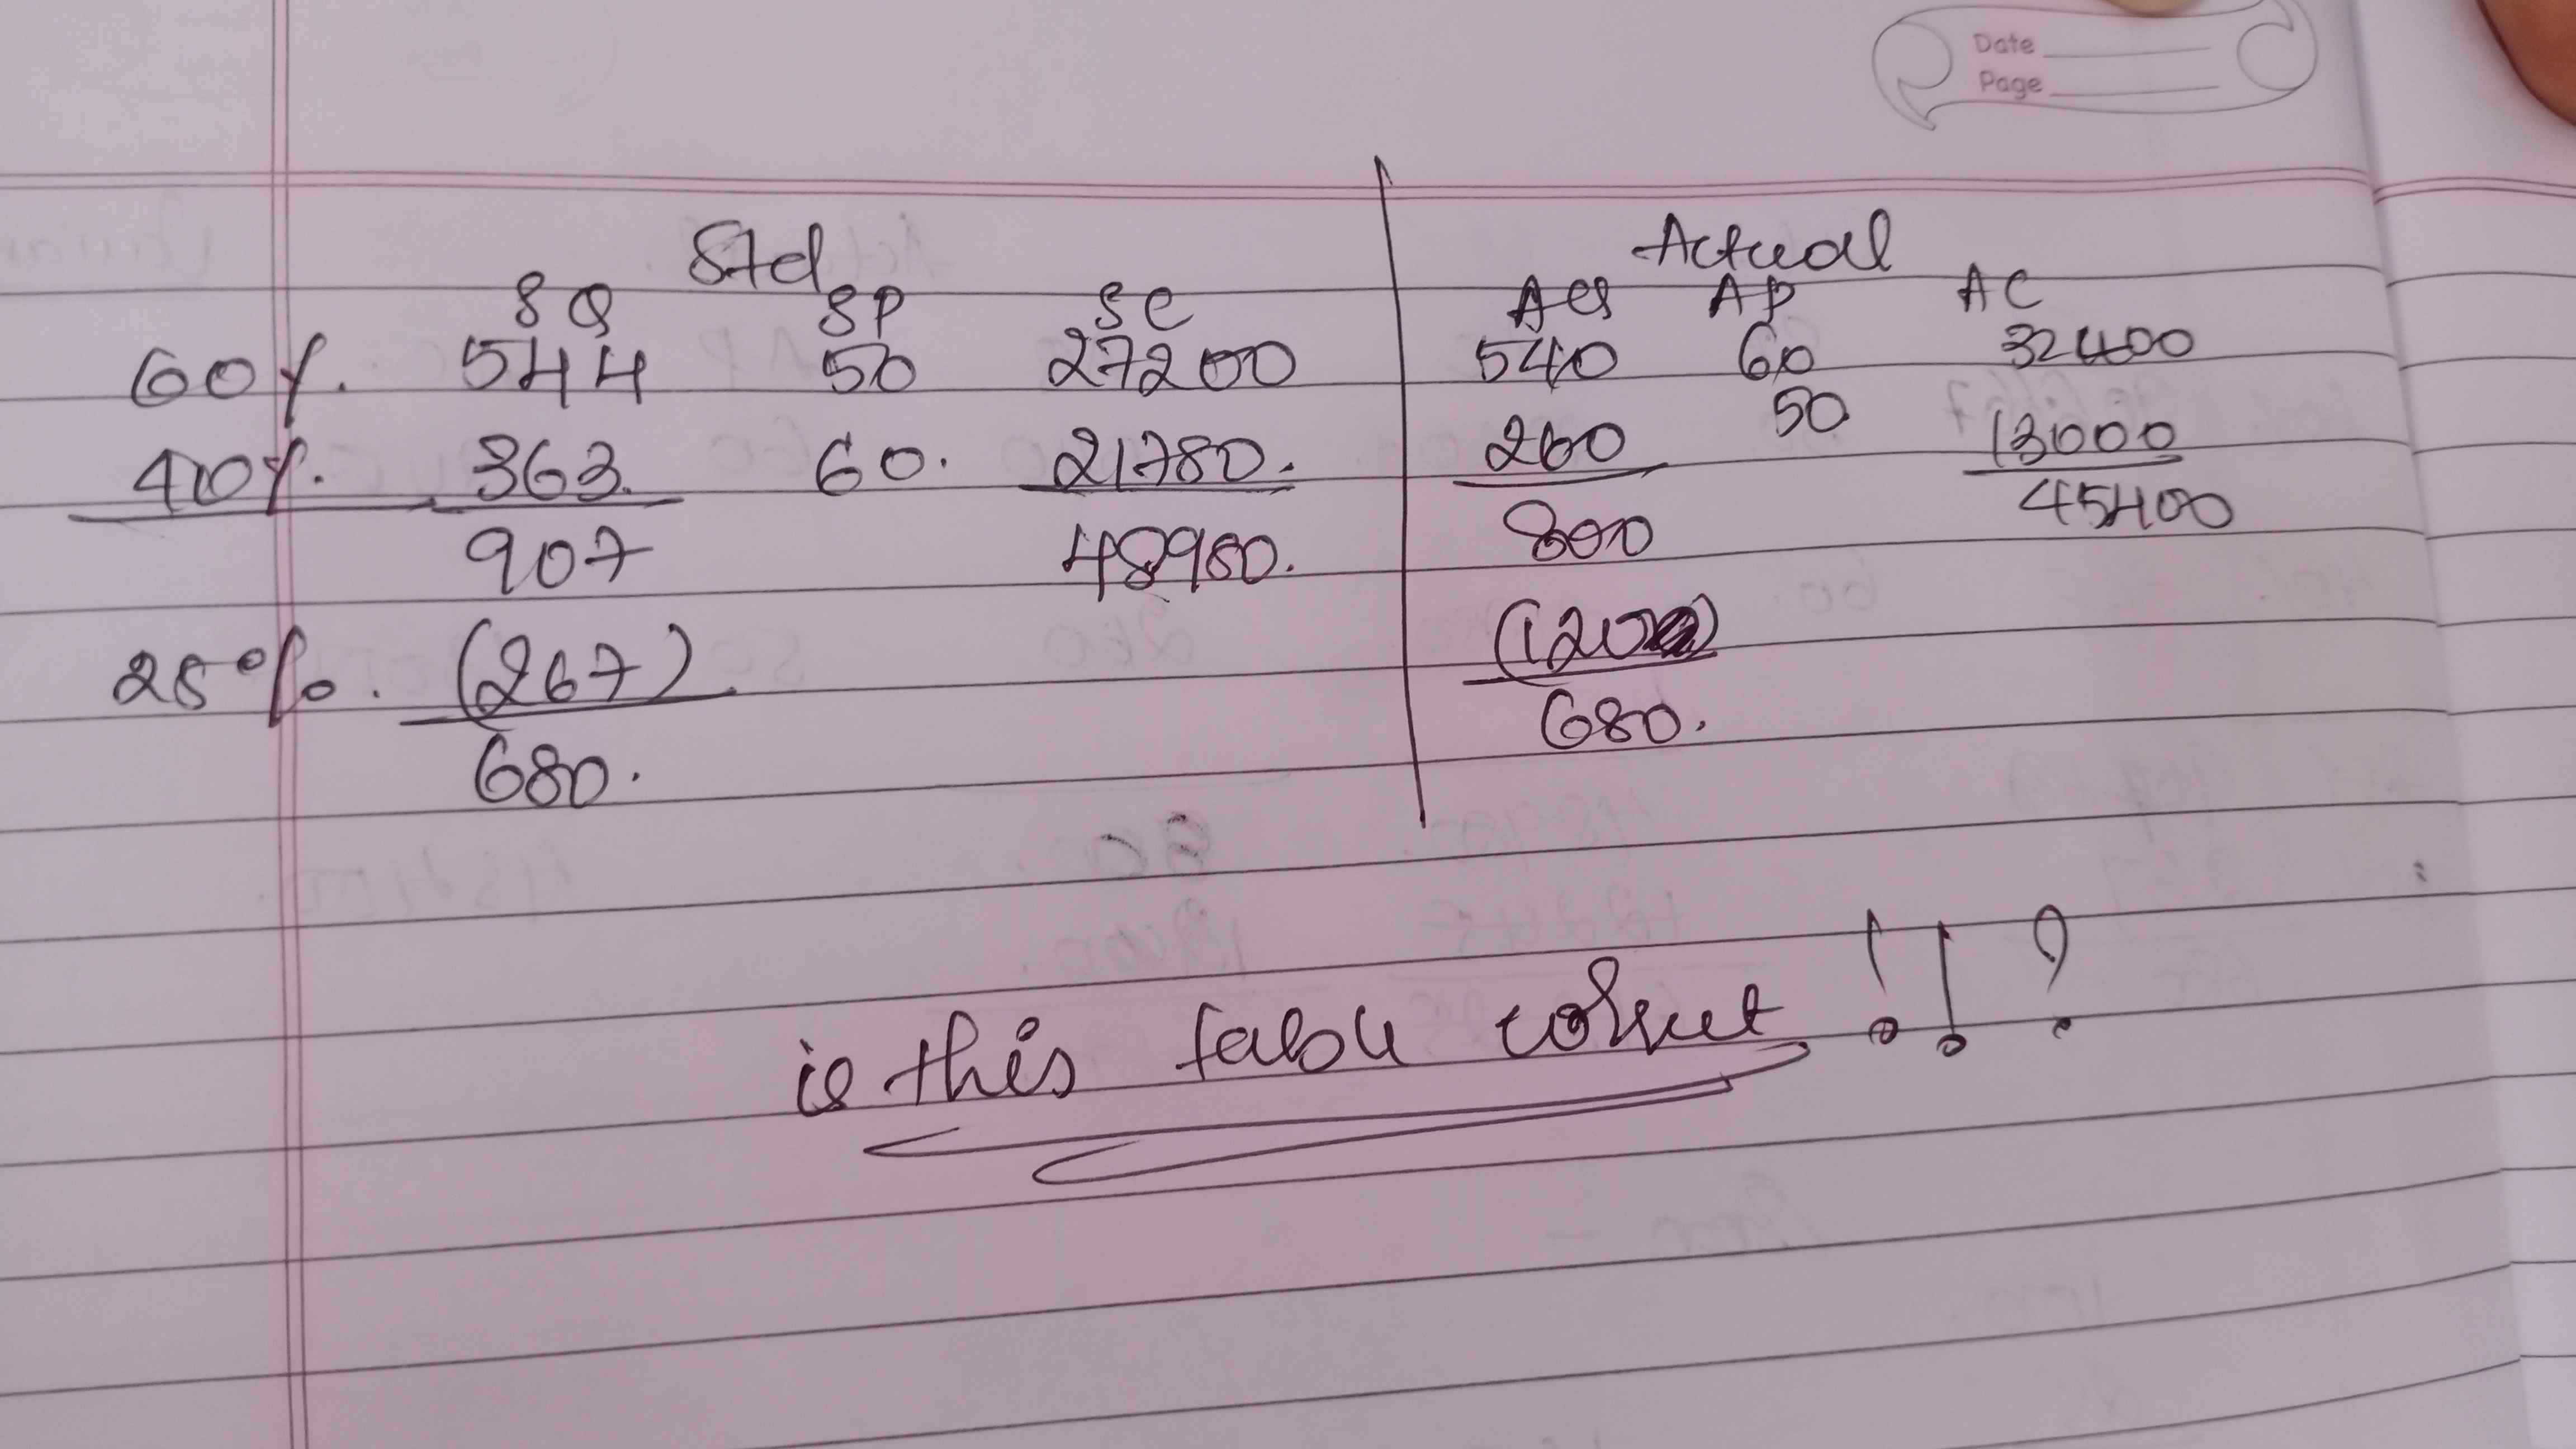 Date
Page
Std
Actual
SQ SP SC
AQ AP AC
60%. 544 50 27200
540 60 32400
40%. 363. 60. 21780.
260 50 13000
907 48980.
800 45400
25%. (267)
(120)
680.
680.
is this table correct !!?